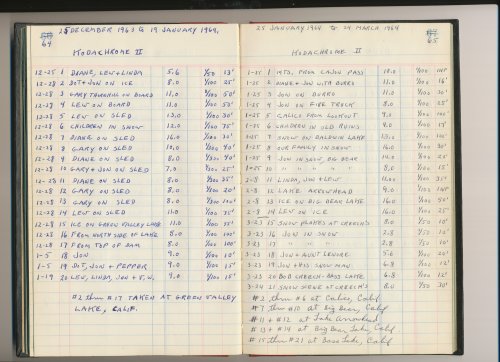 25 DECEMBER 1963 to 19 JANUARY 1964,
64
KODACHROME II
12-25 1 DIANE, LEW & LINDA 5.6 1/50 13'
12-28 2 DOT & JON ON ICE 8.0 1/100 25'
12-28 3 GARY ON BOARD 11.0 1/100 50'
12-28 4 LEW ON BOARD 11.0 1/100 50'
12-28 5 LEW ON SLED 13.0 1/100 30'
12-28 6 CHILDREN IN SNOW 12.0 1/100
12-28 7 DIANE ON SLED 16.0 1/100 35'
12-28 8 GARY ON SLED 10.0 1/100 40'
12-28 9 DIANE ON SLED 8.0 1/100 40'
12-28 10 GARY & JON ON SLED 7.0 1/100 25'
12-28 11 DIANE ON SLED 8.0 1/100 35'
12-28 12 GARY ON SLED 8.0 1/100 20'
12-28 13 GARY ON SLED 8.0 1/100
12-28 14 LEW ON SLED 11.0 1/100 35'
12-28 15 ICE ON GREEN VALLEY LAKE 11.0 1/100 35'
12-28 16 FROM NORTH SIDE OF LAKE 8.0 1/100 100'
12-28 17 FROM TOP OF DAM 8.0 1/100 100'
1-5 18 JON 9.0 1/100 10'
1-5 19 DOT, JON & PEPPER 9.0 1/100 15'
1-19 20 LEW, LINDA, JON & T.W. 9.0 1/100 25'
#2 thru #17 TAKEN AT GREEN VALLEY
LAKE, CALIF.
25 JANUARY 1964 to 24 MARCH 1964
65
KODACHROME II
1-25 1 MTS. FROM CAJON PASS 10.0 1/100 INF
1-25 2 DIANE & JON WITH BURRO 11.0 1/100 16'
1-25 3 JON ON BURRO 11.0 1/100 30'
1-25 4 JON ON FIRE TRUCK 8.0 1/100 25'
1-25 5 CALICO FROM LOOKOUT 9.0 1/100
1-25 6 CHILDREN IN OLD RUINS 8.0 1/100 15'
1-25 7 SNOW ON BALDWIN LAKE 13.0 1/100 100'
1-25 8 OUR FAMILY IN SNOW 16.0 1/100 30'
1-25 9 JON IN SNOW, BIG BEAR 14.0 1/100 20'
1-25 10 " " " " " 8.0 1/100 15'
2-8 11 LINDA, JON & LEW 11.0 1/100 35'
2-8 12 LAKE ARROWHEAD 9.0 1/100 INF
2-8 13 ICE ON BIG BEAR LAKE 16.0 1/100 50'
2-8 14 LEW ON ICE 16.0 1/100 25'
3-23 15 SNOW FLAKES AT CREECH'S 8.0 1/50 10'
3-23 16 JON IN SNOW 2.8 1/50 12'
3-23 17 " " " 2.8 1/50 10'
3-23 18 JON & AUNT LENORE 5.6 1/100 20'
3-23 19 JON & HIS SNOW MAN 6.8 1/100 12'
3-23 20 BOB CREECH - BASS LAKE 6.8 1/100 12'
3-24 21 SNOW SCENE AT CREECH'S 8.0 1/100 30'
#2 thru #6 at Calico, Calif
#7 thru #10 at Big Bear, Calif
#11 + #12 at Lake Arrowhead
#13 + #14 at Big Bear Lake, Calif
#15 thru #21 at Bass Lake, Calif